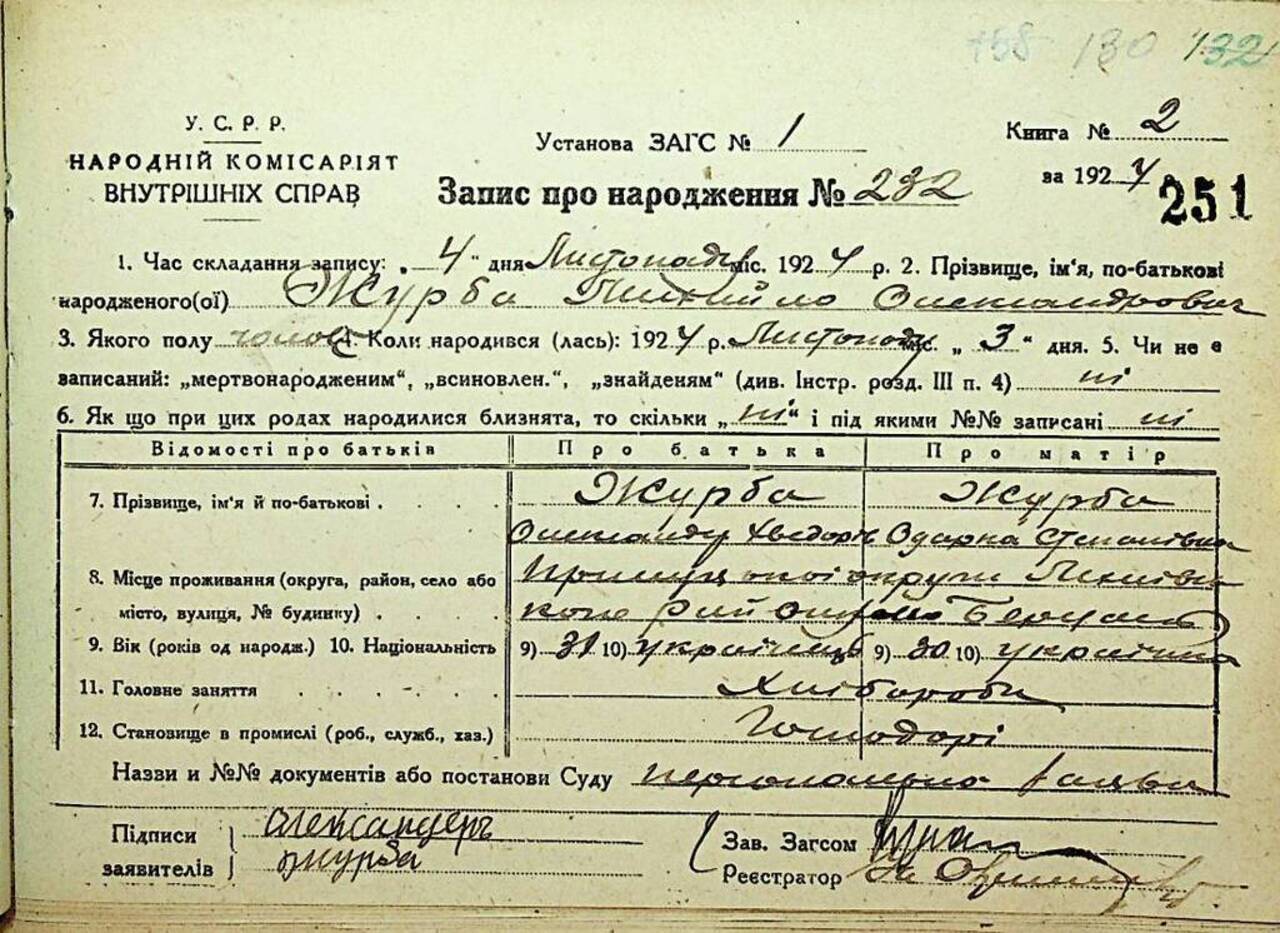 130 132
У. С. Р. Р.
НАРОДНІЙ КОМІСАРІЯТ
ВНУТРІШНІХ СПРАВ
Установа ЗАГС № 1
Книга № 2
за 1924
251
Запис про народження № 232
1. Час складання запису: „ 4 " дня Листопада міс. 1924 р. 2. Прізвище, ім'я, по-батькові
народженого(ої) Журба Михайло Олександрович
3. Якого полу чолов 4. Коли народився (лась): 1924 р. Листопаду міс. „ 3 " дня. 5. Чи не є
записаний: „мертвонародженим", „всиновлен.", „знайденям" (див. Інстр. розд. III п. 4) ні
6. Як що при цих родах народилися близнята, то скільки „ ні " і під якими №№ записані ні
Відомості про батьків Про батька Про матір
7. Прізвище, ім'я й по-батькові . . . . Журба Журба
Олександр Хведорів Одарка Степанівна
8. Місце проживання (округа, район, село або Прилуцької округи
місто, вулиця, № будинку) . . . .
9. Вік (років од народж.) 10. Національність 9) 31 10) українець 9) 30 10) українка
11. Головне заняття . . . . . Хлібороби
12. Становище в промислі (роб., служб., хаз.) Господарі
Назви и №№ документів або постанови Суду персональна заява
Підписи Александеръ
заявителів журба
Зав. Загсом
Реєстратор